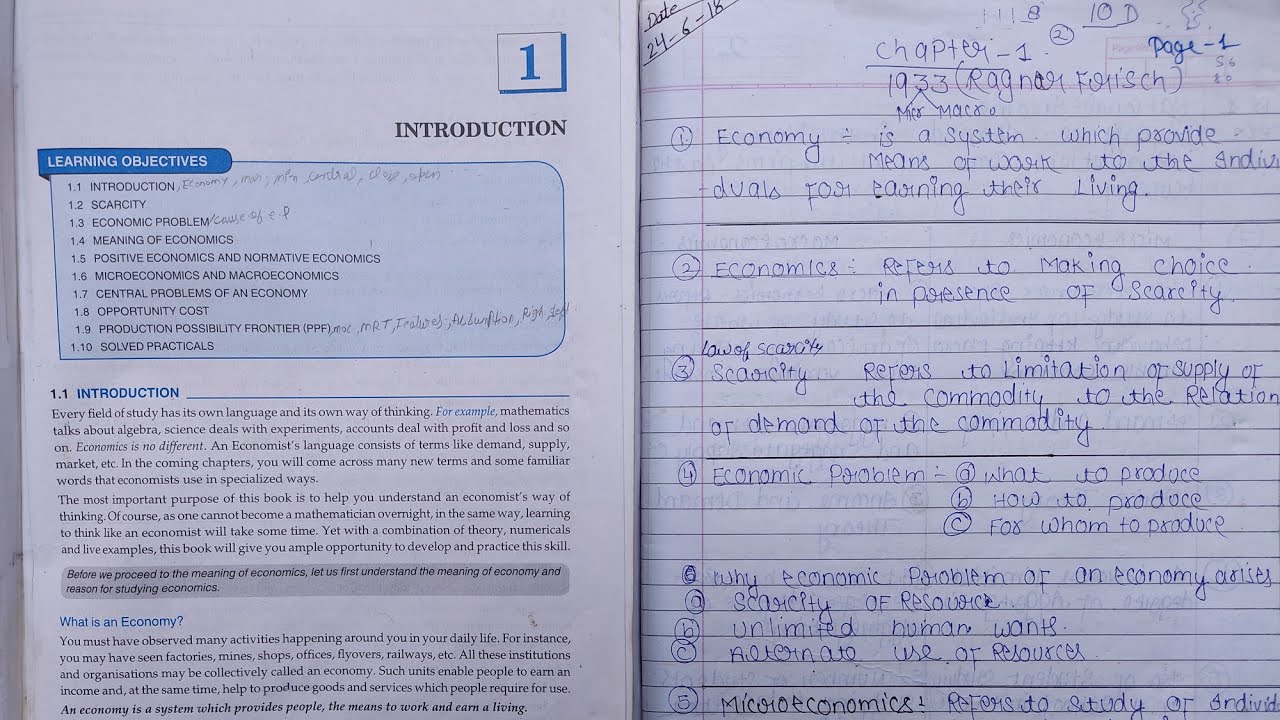 1
INTRODUCTION
LEARNING OBJECTIVES
1.1 INTRODUCTION, Economy, central, close, open
1.2 SCARCITY
1.3 ECONOMIC PROBLEM/cause of e.p
1.4 MEANING OF ECONOMICS
1.5 POSITIVE ECONOMICS AND NORMATIVE ECONOMICS
1.6 MICROECONOMICS AND MACROECONOMICS
1.7 CENTRAL PROBLEMS OF AN ECONOMY
1.8 OPPORTUNITY COST
1.9 PRODUCTION POSSIBILITY FRONTIER (PPF), MOC, MRT, Features, Assumption, Righ, left
1.10 SOLVED PRACTICALS
1.1 INTRODUCTION
Every field of study has its own language and its own way of thinking. For example, mathematics
talks about algebra, science deals with experiments, accounts deal with profit and loss and so
on. Economics is no different. An Economist's language consists of terms like demand, supply,
market, etc. In the coming chapters, you will come across many new terms and some familiar
words that economists use in specialized ways.
The most important purpose of this book is to help you understand an economist's way of
thinking. Of course, as one cannot become a mathematician overnight, in the same way, learning
to think like an economist will take some time. Yet with a combination of theory, numericals
and live examples, this book will give you ample opportunity to develop and practice this skill.
Before we proceed to the meaning of economics, let us first understand the meaning of economy and
reason for studying economics.
What is an Economy?
You must have observed many activities happening around you in your daily life. For instance,
you may have seen factories, mines, shops, offices, flyovers, railways, etc. All these institutions
and organisations may be collectively called an economy. Such units enable people to earn an
income and, at the same time, help to produce goods and services which people require for use.
An economy is a system which provides people, the means to work and earn a living.
Date
24-6-18
10 D
②
Page-1
56
Chapter-1
1933 (Ragnar Forisch)
Micr Macro
① Economy ÷ is a system which provide
Means of work to the Individ
-duals for earning their Living.
② Economics ÷ Refers to Making choice
in presence of scarcity.
Law of scarcity
③ Scarcity Refers to Limitation of supply of
the commodity to the Relation
of demand of the commodity
④ Economic Problem ÷ ⓐ What to produce
ⓑ How to produce
ⓒ For whom to produce
Why economic Problem of an economy arises
ⓐ Scarcity of Resource
ⓑ unlimited human wants.
ⓒ Alternate use of Resources
⑤ Microeconomics: Refers to study of Individ